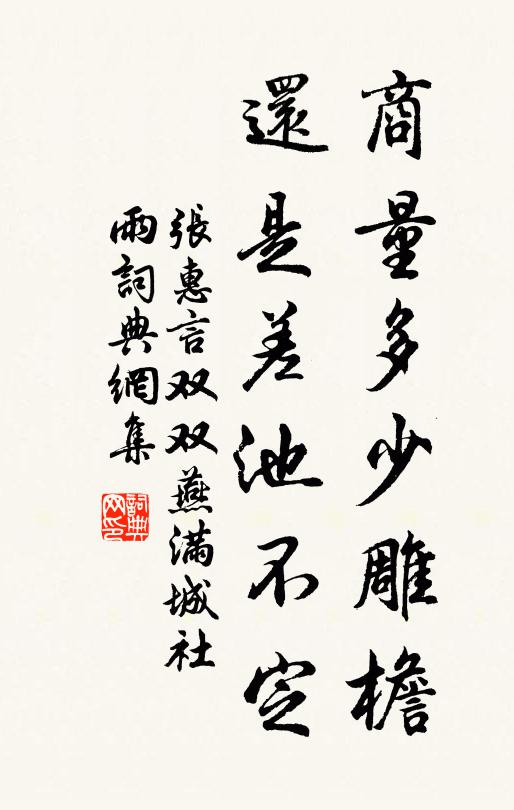 商量多少雕檐
還是差池不定
張惠言双双燕滿城社
雨詞典網集
詞典网印